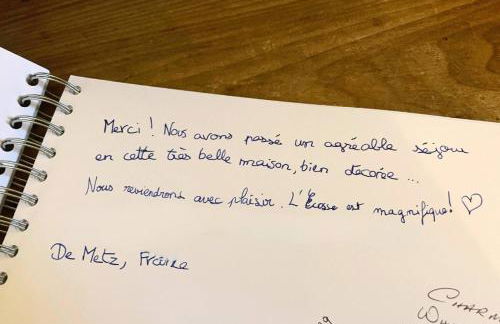 Merci ! Nous avons passé un agréable séjour
en cette très belle maison, bien décorée ...
Nous reviendrons avec plaisir. L'Écosse est magnifique! ♡
De Metz, France